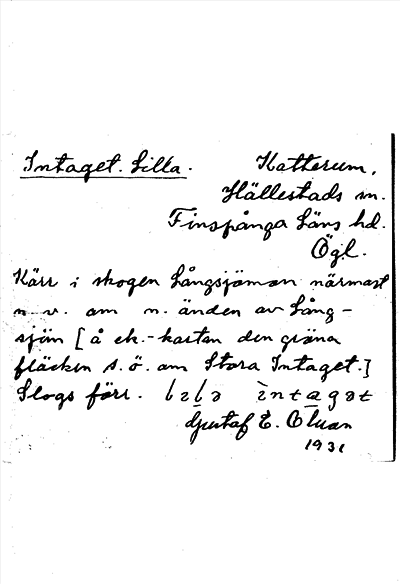 Intaget. Lilla.
Katterum,
Hällestads sn.
Finspånga Läns hd.
Ögl.
Kärr i skogen Långsjömon närmast
n. v. om n. änden av Lång-
sjön [å ek.-kartan den gröna
fläcken s. ö. om Stora Intaget.]
Slogs förr. ɩntagət
Gustaf E.
1931